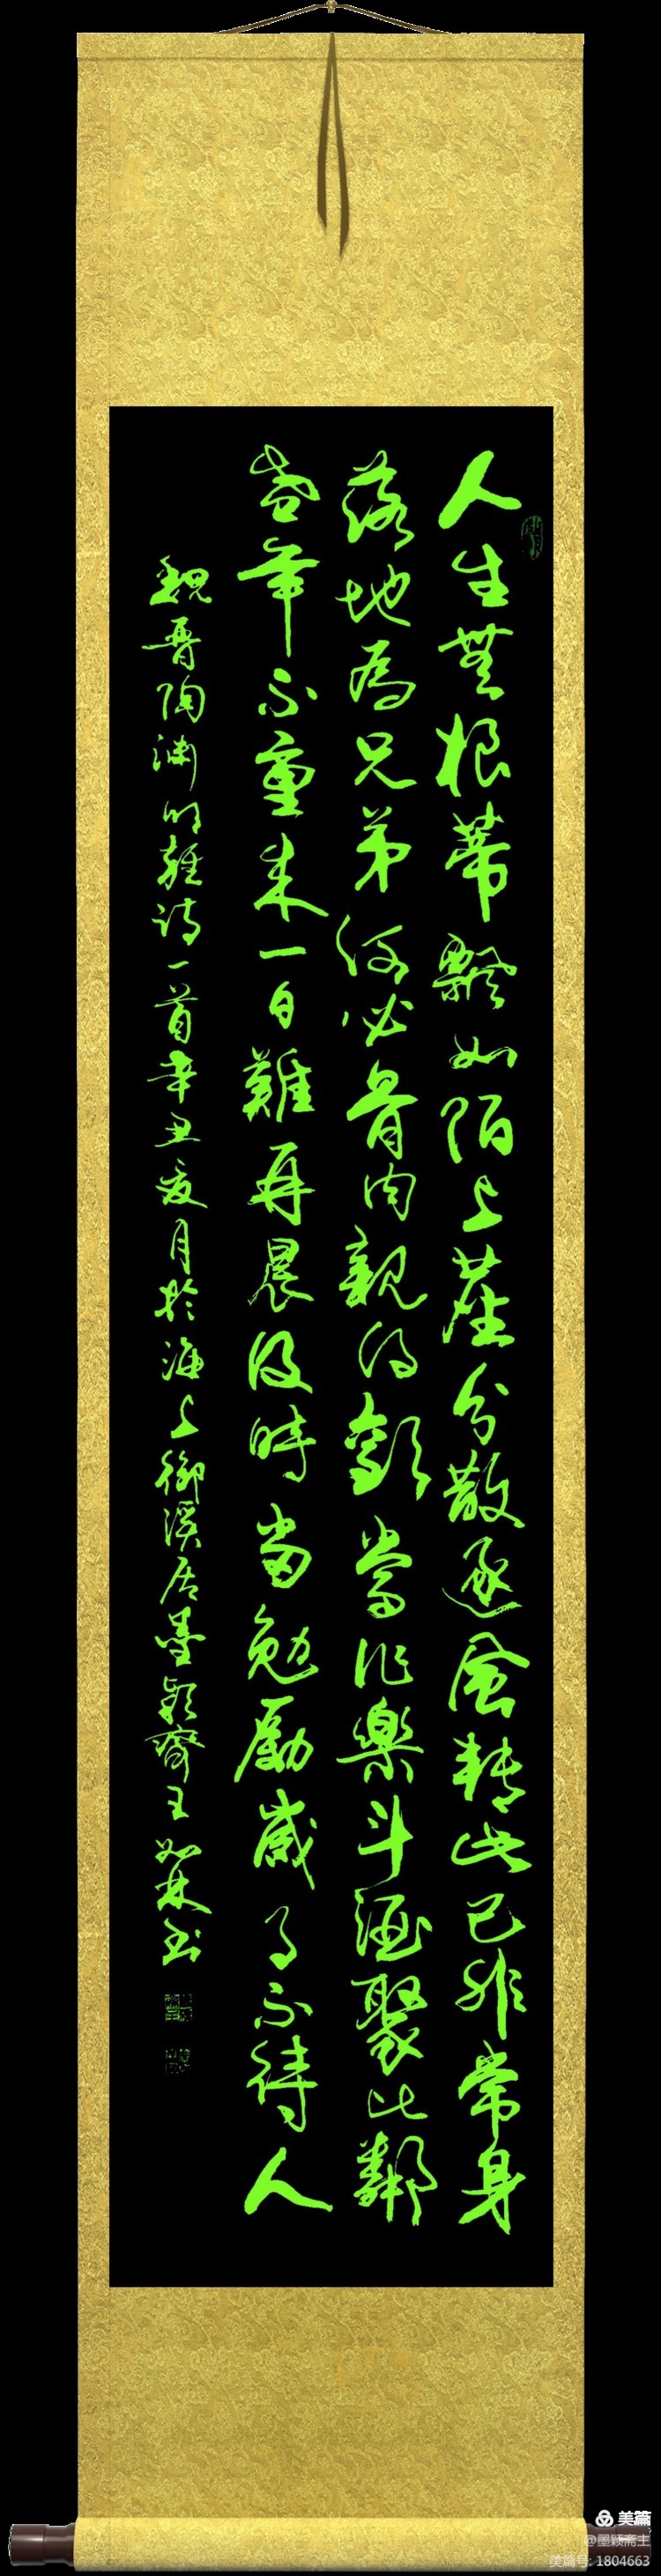 人生無根蒂飄如陌上塵分散逐風轉此已非常身
落地為兄弟何必骨肉親得歡當作樂斗酒聚比鄰
盛年不重來一日難再晨及時當勉勵歲月不待人
魏晋陶渊明雜詩一首辛丑夏月於海上御溪居墨颖齋王如林书
美篇
@墨颖斋主
美篇号: 1804663